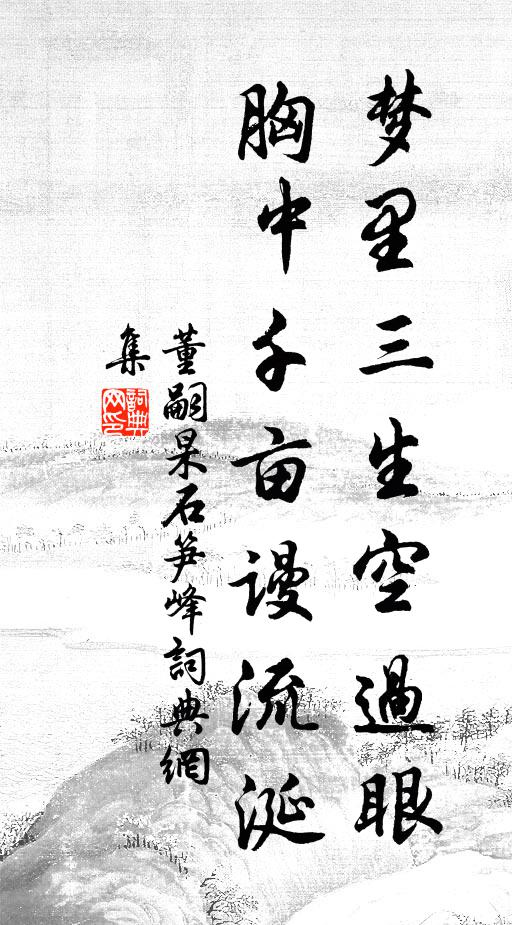 梦里三生空過眼
胸中千亩谩流涎
董嗣杲石笋峰詞典網
集
詞典
网印